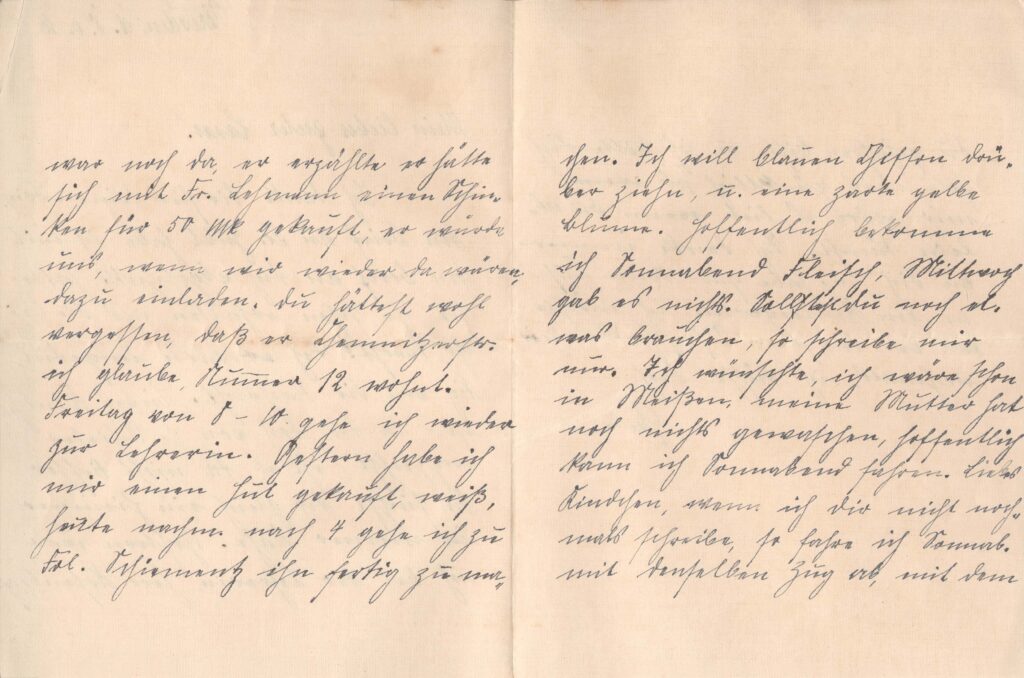 war noch da, er erzählte er hätte
sich mit Fr. Lehmann einen Schin-
ken für 50 Mk gekauft, er würde
uns, wenn wir wieder da wären,
dazu einladen. Du hättest wohl
vergessen, daß er Chemnitzerstr.
ich glaube, Nummer 12 wohnt.
Freitag von 8 – 10 gehe ich wieder
zur Lehrerin. Gestern habe ich
mir einen Hut gekauft, weiß,
heute nachm. nach 4 gehe ich zu
Frl. Schiementz ihn fertig zu ma-
chen. Ich will blauen Chiffon drü-
ber ziehn, u. eine zarte gelbe
Blume. Hoffentlich bekomme
ich Sonnabend Fleisch, Mittwoch
gab es nichts. Solltest du noch et-
was brauchen, so schreibe mir
nur. Ich wünschte, ich wäre schon
in Meißen, meine Mutter hat
noch nichts gewaschen, hoffentlich
kann ich Sonnabend fahren. Liebes
Kindchen, wenn ich dir nicht noch-
mals schreibe, so fahre ich Sonnab.
mit denselben Zug ab, mit dem